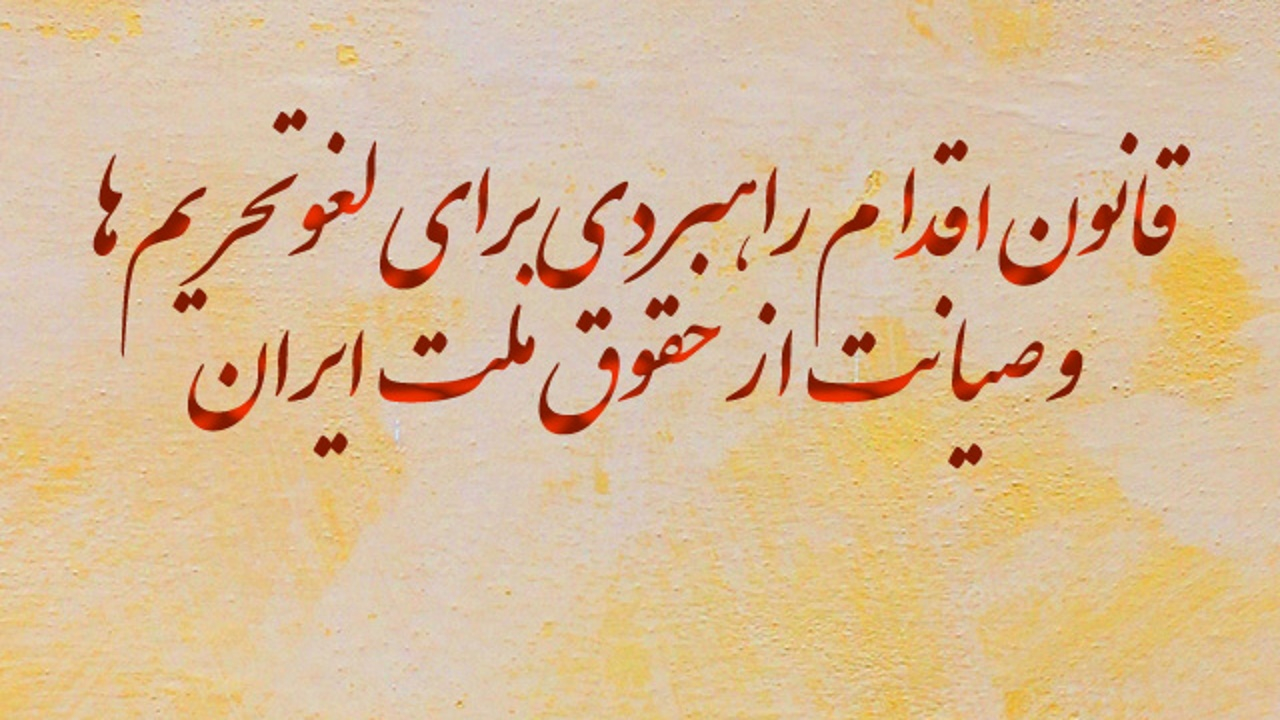 قانون اقدام راهبردی برای لغو تحریم ها
و صیانت از حقوق ملت ایران